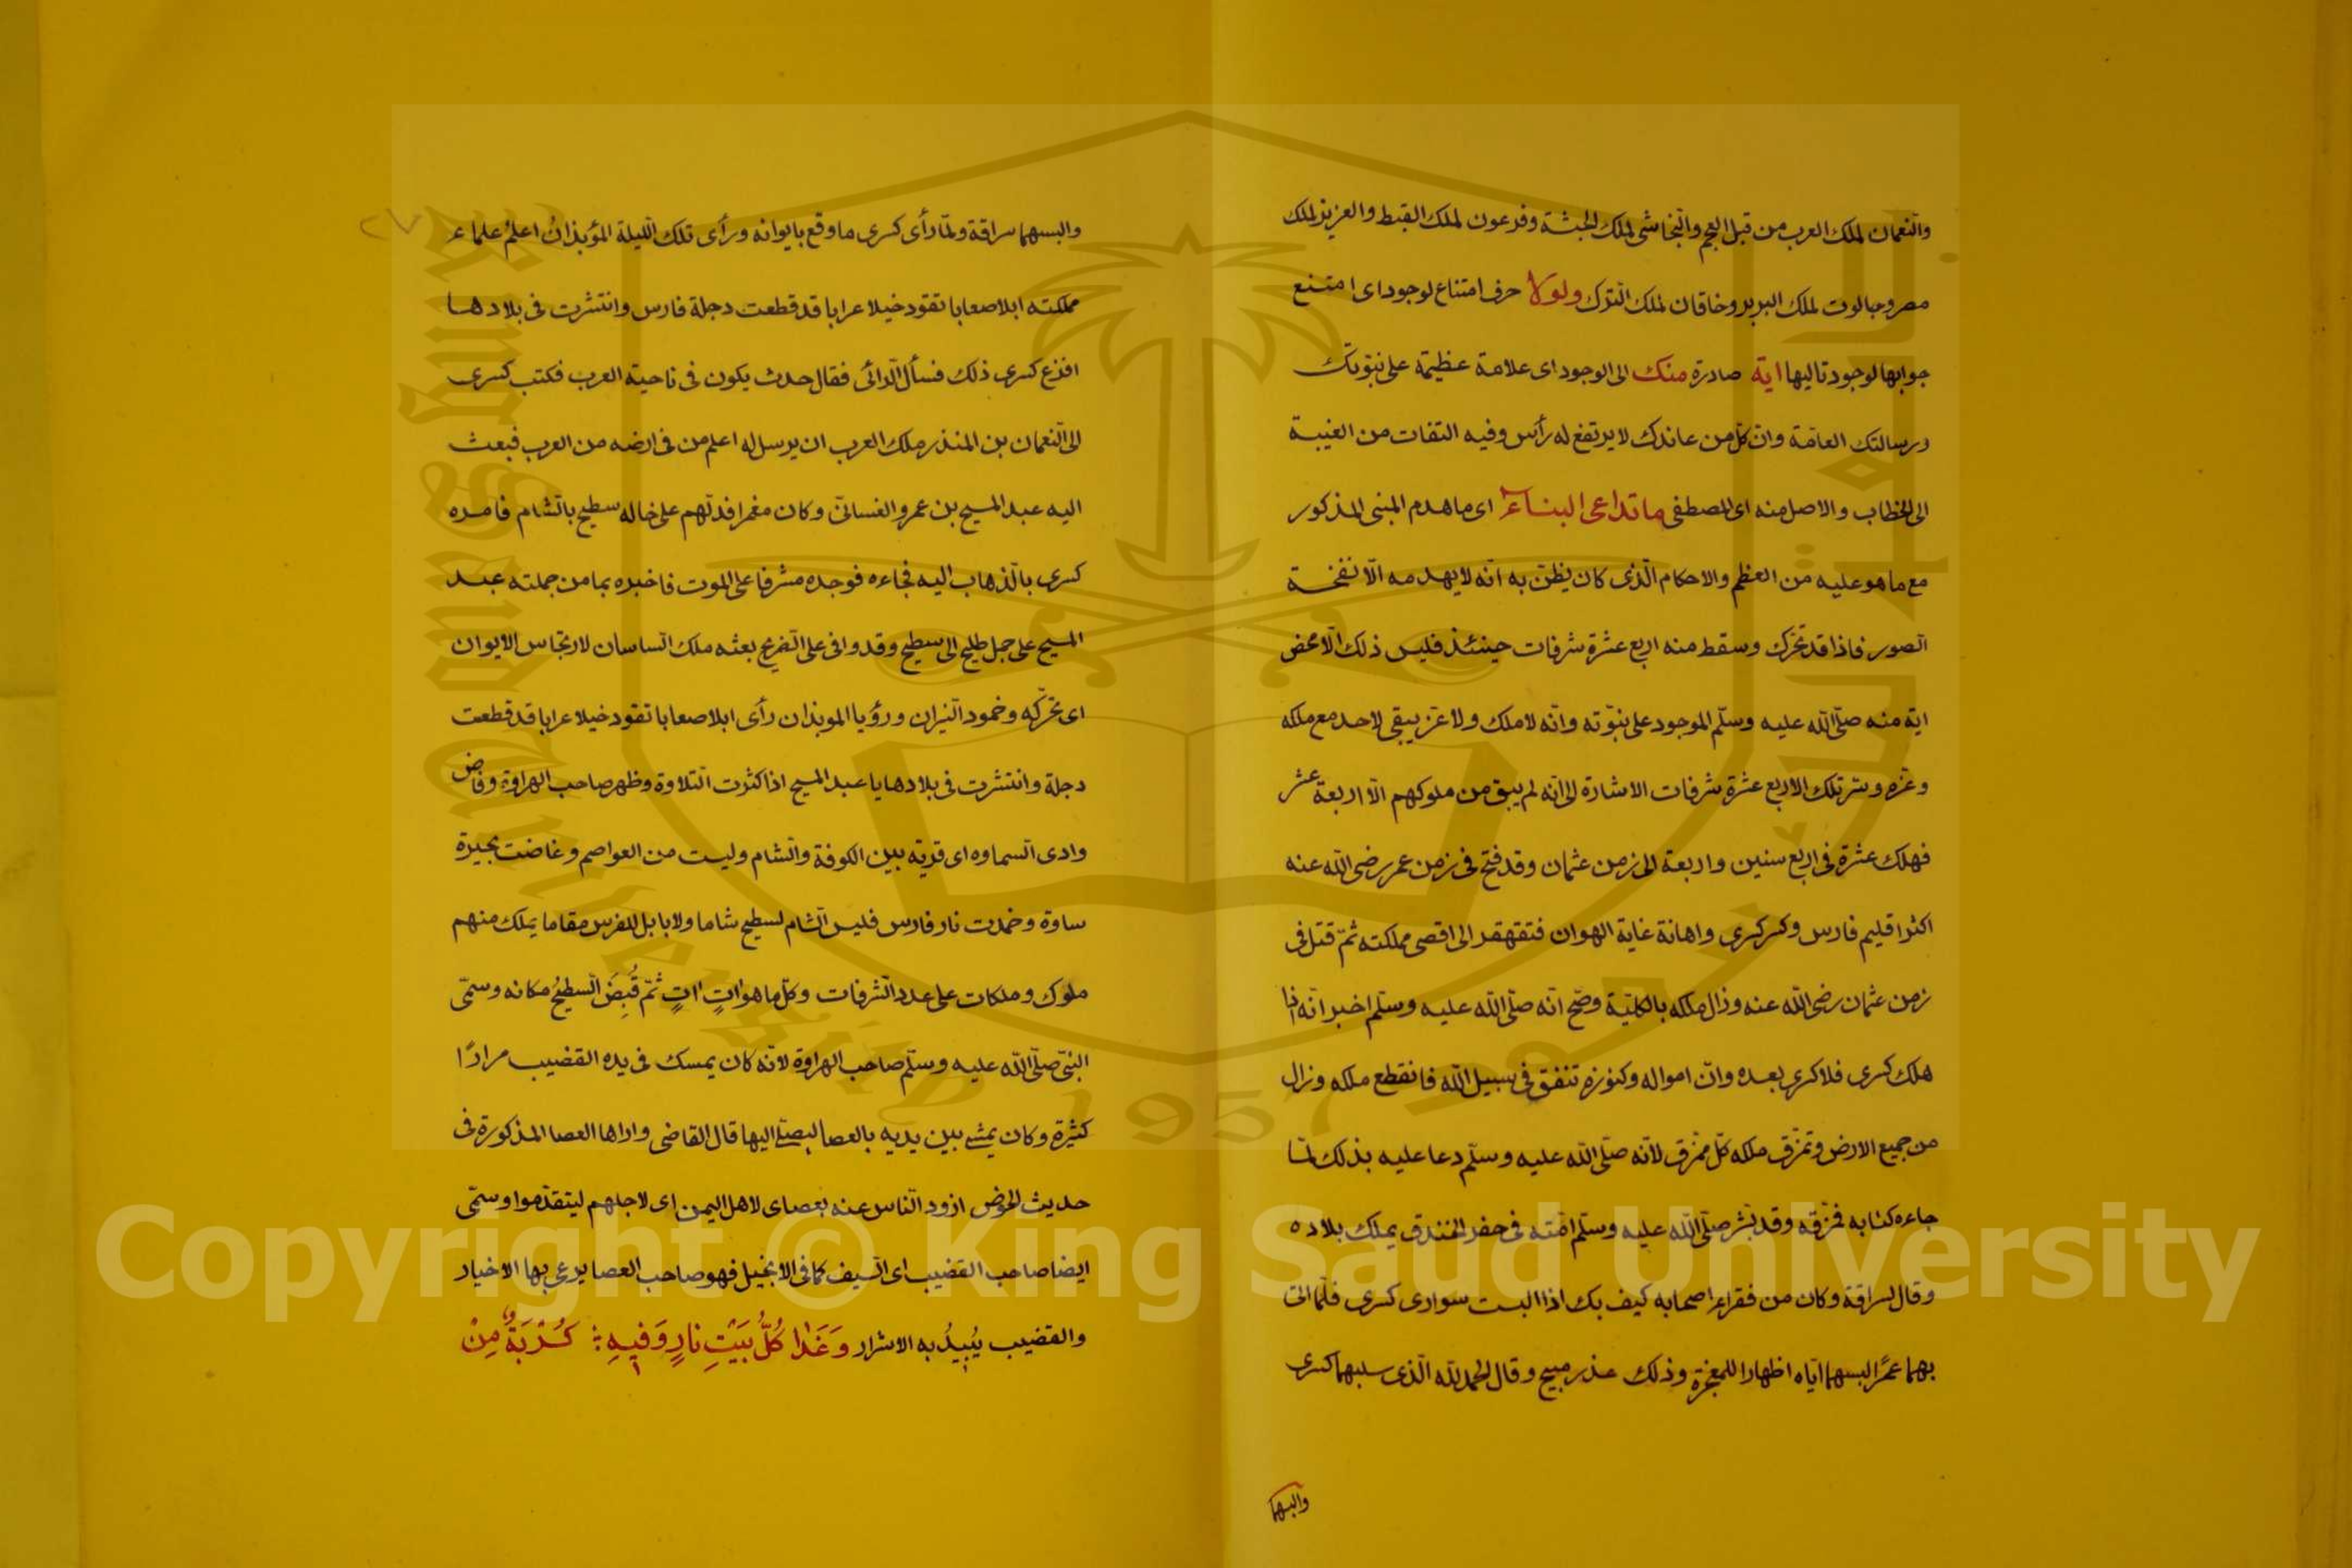 والنعمان لملك العرب من قبل العجم والنجاشى لملك الحبشة وفرعون لملك القبط والعزيز لملك
مصر وجالوت لملك البربر وخاقان لملك الترك ولولا حرف امتناع لوجود اى امتنع
جوابها لوجود تاليها اية صادرة منك الى الوجود اى علامة عظيمة على نبوّتك
ورسالتك العامّة وانّ كلّ من عاندك لا يرتفع له رأس وفيه التفات من الغيبة
الى الخطاب والاصل منه اى المصطفى ما تداعى البناء اى ما هدم المبنى المذكور
مع ما هو عليه من العظم والاحكام الّذى كان يظنّ به انّه لا يهدمه الّا نفخة
الصور فاذا قد تحرّك وسقط منه اربع عشرة شرفات حينئذ فليس ذلك الّا محض
اية منه صلّى اللّه عليه وسلّم الموجود على نبوّته وانّه لا ملك ولا عزّ يبقى لاحد مع ملكه
وعزّه وسرّ تلك الاربع عشرة شرفات الاشارة الى انّه لم يبق من ملوكهم الّا اربعة عشر
فهلك عشرة فى اربع سنين واربعة الى زمن عثمان وقد فتح فى زمن عمر رضى اللّه عنه
اكثر اقليم فارس وكسر كسرى واهانة غاية الهوان فتقهقر الى اقصى مملكته ثمّ قتل فى
زمن عثمان رضى اللّه عنه وزال ملكه بالكلّيّة وصّح انّه صلّى اللّه عليه وسلّم اخبر انّه اذا
هلك كسرى فلا كسرى بعده وانّ امواله وكنوزه تنفق فى سبيل اللّه فانقطع ملكه وزال
من جميع الارض وتمزّق ملكه كلّ ممزّق لانّه صلّى اللّه عليه وسلّم دعا عليه بذلك لمّا
جاءه كتابه فمزّقه وقد بشّر صلّى اللّه عليه وسلّم امّته فى حفر الخندق بملك بلاده
وقال لسراقة وكان من فقراء اصحابه كيف بك اذا البست سوارى كسرى فلمّا اتى
بهما عمر البسهما ايّاه اظهارا للمعجزة وذلك عذر مبيح وقال الحمد للّه الّذى سلبهما كسرى
والبسهما
والبسهما سراقة ولمّا رأى كسرى ما وقع بايوانه ورأى تلك اللّيلة المؤبذانُ اعلمُ علماء
مملكته ابلا صعابا تقود خيلا عرابا قد قطعت دجلة فارس وانتشرت فى بلادها
افزع كسرى ذلك فسأل الرائى فقال حدث يكون فى ناحية العرب فكتب كسرى
الى النعمان بن المنذر ملك العرب ان يرسل له اعلم من فى ارضه من العرب فبعث
اليه عبد المسيح بن عمرو الغسانىّ وكان معمرا فدلّهم على خاله سطيح بالشام فامره
كسرى بالذهاب اليه فجاءه فوجده مشرفا على الموت فاخبره بما من جملته عبد
المسيح على جمل طليح الى سطيح وقد وافى على الضريح بعثه ملك الساسان لارتجاس الايوان
اى تحرّكه وخمود النيران ورؤيا الموبذان رأى ابلا صعابا تقود خيلا عرابا قد قطعت
دجلة وانتشرت فى بلادها يا عبد المسيح اذا كثرت التلاوة وظهر صاحب الهراوة وفاض
وادى السماوه اى قرية بين الكوفة والشام وليست من العواصم وغاضت بحيرة
ساوة وخمدت نار فارس فليس الشام لسطيح شاما ولا بابل للفرس مقاما يملك منهم
ملوك وملكات على عدد الشرفات وكلّ ما هو اٰتٍ اٰتٍ ثمّ قُبِضَ السطيحُ مكانه وسمّى
النبىّ صلّى اللّه عليه وسلّم صاحب الهراوة لانّه كان يمسك فى يده القضيب مرارًا
كثيرة وكان يمشى بين يديه بالعصا ليصلّى اليها قال القاضى واراها العصا المذكورة فى
حديث الحوض ازود النّاس عنه بعصاى لاهل اليمن اى لاجلهم ليتقدّموا وسمّى
ايضا صاحب القضيب اى السيف كما فى الانجيل فهو صاحب العصا يرعى بها الاخيار
والقضيب يُبِيدُ به الاشرار وَغَدَا كُلُّ بَيْتِ نَارٍ وَفِيهِ ؛ كُرْبَةٌ مِنْ
٢٧
King Saud University
1957
Copyright © King Saud University